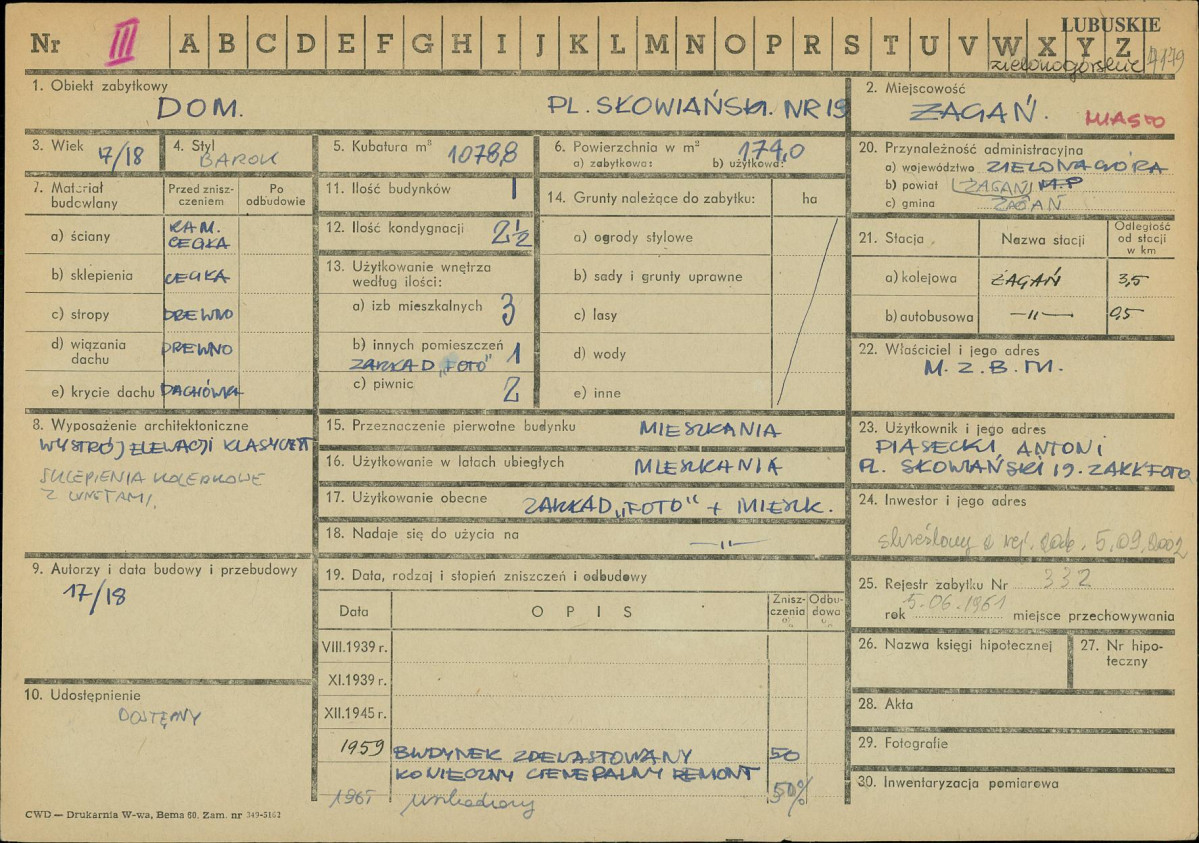 LUBUSKIE
Nr III A B C D E F G H I J K L M N O P R S T U V W X Y Z
zielonogórskie 4179
1. Obiekt zabytkowy
DOM. PL. SŁOWIAŃSKI. NR 19
2. Miejscowość
ŻAGAŃ. MIASTO
3. Wiek 17/18
4. Styl
BAROK
5. Kubatura m³
1078,8
6. Powierzchnia w m²
174,0
a) zabytkowa: b) użytkowa:
20. Przynależność administracyjna
a) województwo ZIELONA GÓRA
b) powiat ŻAGAŃ M.P
c) gmina ŻAGAŃ
7. Materiał budowlany
Przed zniszczeniem
Po odbudowie
a) ściany KAM. CEGŁA
b) sklepienia CEGŁA
c) stropy DREWNO
d) wiązania dachu DREWNO
e) krycie dachu DACHÓWKA
11. Ilość budynków 1
12. Ilość kondygnacji 2½
13. Użytkowanie wnętrza
według ilości:
a) izb mieszkalnych 3
b) innych pomieszczeń
ZAKŁAD „FOTO" 1
c) piwnic 2
14. Grunty należące do zabytku: ha
a) ogrody stylowe
b) sady i grunty uprawne
c) lasy
d) wody
e) inne
21. Stacja
Nazwa stacji
Odległość od stacji w km
a) kolejowa ŻAGAŃ 3,5
b) autobusowa —"— 0,5
22. Właściciel i jego adres
M. Z. B. M.
8. Wyposażenie architektoniczne
WYSTRÓJ ELEWACJI KLASYCYST
SKLEPIENIA KOLEBKOWE
Z LUNETAMI.
15. Przeznaczenie pierwotne budynku MIESZKANIA
16. Użytkowanie w latach ubiegłych MIESZKANIA
17. Użytkowanie obecne ZAKŁAD „FOTO" + MIESZK.
18. Nadaje się do użycia na —"—
23. Użytkownik i jego adres
PIASECKI ANTONI
PL. SŁOWIAŃSKI 19. ZAKŁ FOTO
24. Inwestor i jego adres
skreślony z rej. zab. 5.09.2002
9. Autorzy i data budowy i przebudowy
17/18
19. Data, rodzaj i stopień zniszczeń i odbudowy
Data
OPIS
Zniszczenia %
Odbudowa %
VIII.1939 r.
XI.1939 r.
XII.1945 r.
1959 BUDYNEK ZDEWASTOWANY 50
KONIECZNY GENERALNY REMONT
1965 uszkodzony 50%
25. Rejestr zabytku Nr 332
rok 5.06.1961 miejsce przechowywania
26. Nazwa księgi hipotecznej
27. Nr hipoteczny
28. Akta
29. Fotografie
30. Inwentaryzacja pomiarowa
10. Udostępnienie
DOSTĘPNY
CWD — Drukarnia W-wa, Bema 60. Zam. nr 349-5162